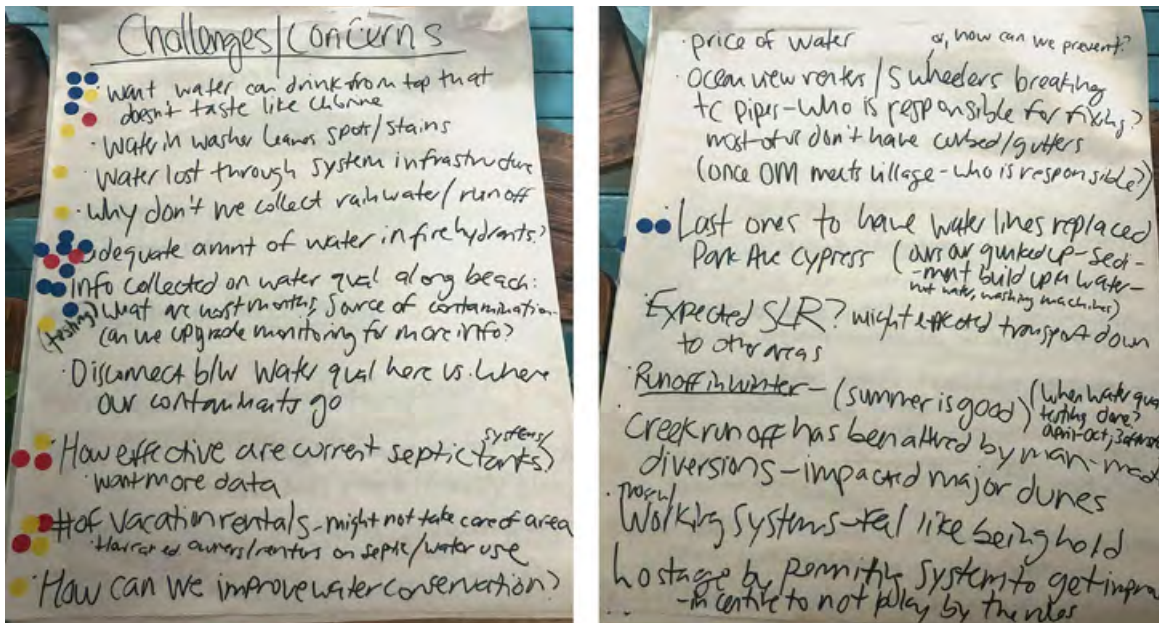 Challenges/Concerns
· Want water can drink from tap that
doesn't taste like chlorine
· Water in washer leaves spots/stains
· Water lost through system infrastructure
· Why don't we collect rainwater/runoff
adequate amnt of water in fire hydrants?
· Info collected on water qual along beach:
(testing) What are worst months, source of contamination
can we upgrade monitoring for more info?
· Disconnect b/w water qual here vs. where
our contaminants go
systems/
· How effective are current septic tanks?
want more data
· # of vacation rentals - might not take care of area
owners/renters on septic/water use
· How can we improve water conservation?
· price of water
or, how can we prevent?
· Ocean view renters/5 wheelers breaking
TC pipes - who is responsible for fixing?
most of us don't have curbed/gutters
(once OM meets village - who is responsible?)
· Last ones to have water lines replaced
Park Ave Cypress (ours are gunked up - sedi-
-ment build up in water -
hot water, washing machines)
· Expected SLR? might effected transport down
to other areas
· Runoff in winter - (summer is good)
(when water qua
testing done?
april-oct,
· Creek run off has been altered by man-mad
diversions - impacted major dunes
· Working systems - feel like being hold
hostage by permitting system to get impro
- incentive to not play by the rules